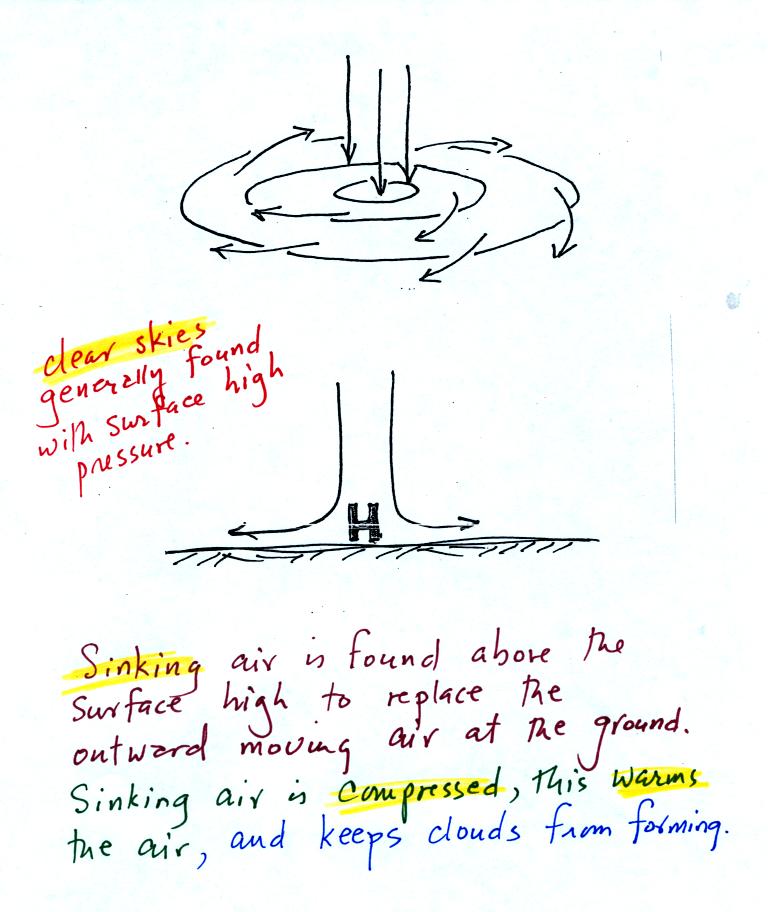 clear skies
generally found
with surface high
pressure.
H
Sinking air is found above the
surface high to replace the
outward moving air at the ground.
Sinking air is compressed, this warms
the air, and keeps clouds from forming.